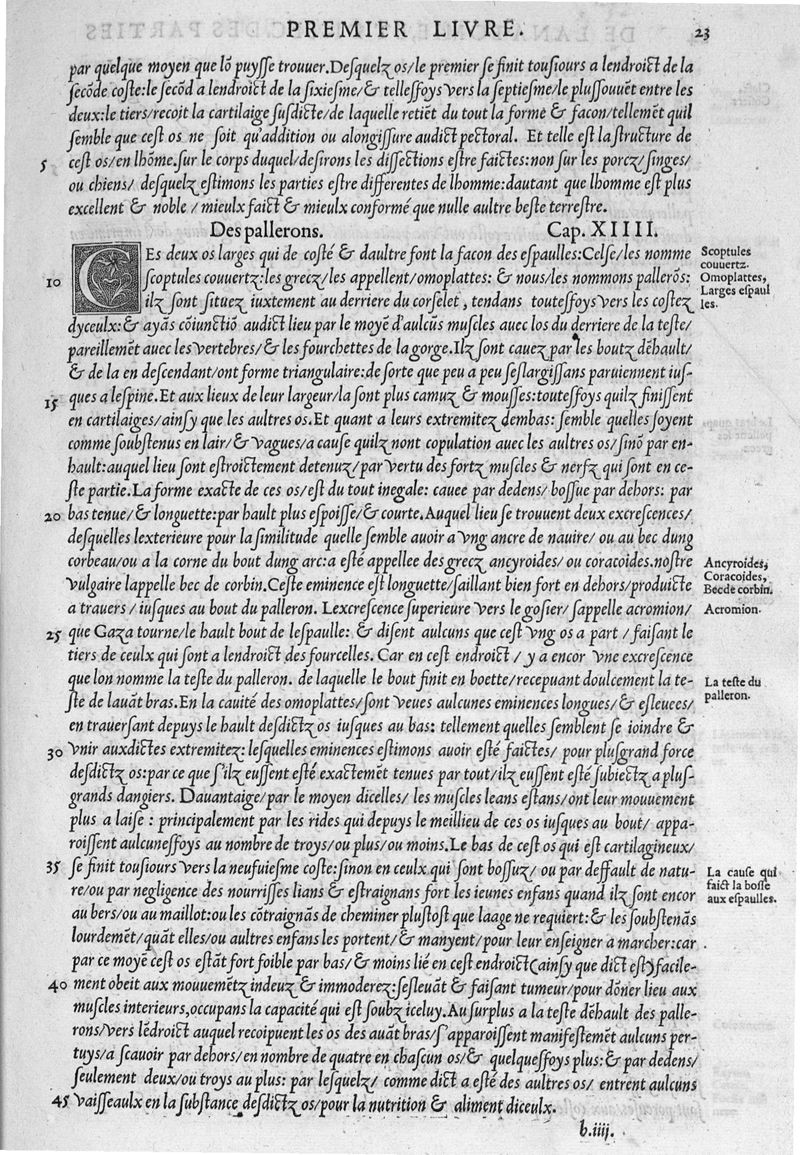 PREMIER LIVRE.
23
par quelque moyen que lõ puysse trouuer. Desquelz os/le premier se finit tousiours a lendroict de la
secõde coste:le secõd a lendroict de la sixiesme/& tellesfoys vers la septiesme/le plussouuẽt entre les
deux:le tiers/recoit la cartilaige susdicte/de laquelle retiẽt du tout la forme & facon/tellemẽt quil
semble que cest os ne soit qu'addition ou alongissure audict pectoral. Et telle est la structure de
5 cest os/en lhõme.sur le corps duquel/desirons les dissections estre faictes:non sur les porcz/singes/
ou chiens/ desquelz estimons les parties estre differentes de lhomme:dautant que lhomme est plus
excellent & noble / mieulx faict & mieulx conformé que nulle aultre beste terrestre.
Des pallerons. Cap. XIIII.
CEs deux os larges qui de costé & daultre font la facon des espaulles:Celse/les nomme
Scoptules
couuertz.
10 scoptules couuertz:les grecz/les appellent/omoplattes: & nous/les nommons pallerõs:
Omoplattes,
Larges espaul
les.
ilz sont situez iuxtement au derriere du corselet, tendans toutesfoys vers les costez
dyceulx:& ayãs cõiunctiõ audict lieu par le moyẽ d'aulcũs muscles auec los du derriere de la teste/
pareillemẽt auec les vertebres/& les fourchettes de la gorge.Ilz sont cauez par les boutz dẽhault/
& de la en descendant/ont forme triangulaire:de sorte que peu a peu seslargissans paruiennent ius-
15 ques a lespine.Et aux lieux de leur largeur/la sont plus camuz & mousses:toutesfoys quilz finissent
en cartilaiges/ainsy que les aultres os.Et quant a leurs extremitez dembas: semble quelles soyent
comme soubstenus en lair/& vagues/a cause quilz nont copulation auec les aultres os/sinõ par en-
hault:auquel lieu sont estroictement detenuz/par vertu des fortz muscles & nerfz qui sont en ce-
ste partie.La forme exacte de ces os/est du tout inegale: cauee par dedens/ bossue par dehors: par
20 bas tenue/& longuette:par hault plus espoisse/& courte.Auquel lieu se trouuent deux excrescences/
desquelles lexterieure pour la similitude quelle semble auoir a vng ancre de nauire/ ou au bec dung
corbeau/ou a la corne du bout dung arc:a esté appellee des grecz ancyroides/ou coracoides.nostre
Ancyroides,
Coracoides,
Bec de corbin.
vulgaire lappelle bec de corbin.Ceste eminence est longuette/saillant bien fort en dehors/produicte
a trauers / iusques au bout du palleron. Lexcrescence superieure vers le gosier/ sappelle acromion/
Acromion.
25 que Gaza tourne/le hault bout de lespaulle: & disent aulcuns que cest vng os a part / faisant le
tiers de ceulx qui sont a lendroict des fourcelles. Car en cest endroict / y a encor vne excrescence
que lon nomme la teste du palleron. de laquelle le bout finit en boette/recepuant doulcement la te-
La teste du
palleron.
ste de lauãt bras.En la cauité des omoplattes/sont veues aulcunes eminences longues/& esleuees/
en trauersant depuys le hault desdictz os iusques au bas: tellement quelles semblent se ioindre &
30 vnir auxdictes extremitez: lesquelles eminences estimons auoir esté faictes/ pour plusgrand force
desdictz os:par ce que s'ilz eussent esté exactemẽt tenues par tout/ilz eussent esté subiectz a plus-
grands dangiers. Dauantaige/par le moyen dicelles/ les muscles leans estans/ont leur mouuement
plus a laise : principalement par les rides qui depuys le meillieu de ces os iusques au bout/ appa-
roissent aulcunesfoys au nombre de troys/ou plus/ou moins.Le bas de cest os qui est cartilagineux/
35 se finit tousiours vers la neufuiesme coste:sinon en ceulx qui sont bossuz/ ou par deffault de natu-
La cause qui
faict la bosse
aux espaulles.
re/ou par negligence des nourrisses lians & estraignans fort les ieunes enfans quand ilz sont encor
au bers/ou au maillot:ou les cõtraignãs de cheminer plustost que laage ne requiert:& les soubstenãs
lourdemẽt/quãt elles/ou aultres enfans les portent/& manyent/pour leur enseigner a marcher:car
par ce moyẽ cest os estãt fort foible par bas/& moins lié en cest endroict(ainsy que dict est)facile-
40 ment obeit aux mouuemẽtz indeuz & immoderez:sesleuãt & faisant tumeur/pour dõner lieu aux
muscles interieurs,occupans la capacité qui est soubz iceluy.Au surplus a la teste dẽhault des palle-
rons/vers lẽdroict auquel recoipuent les os des auãt bras/s'apparoissent manifestemẽt aulcuns per-
tuys/a scauoir par dehors/en nombre de quatre en chascun os/& quelquesfoys plus:& par dedens/
seulement deux/ou troys au plus: par lesquelz/ comme dict a esté des aultres os/ entrent aulcuns
45 vaisseaulx en la substance desdictz os/pour la nutrition & aliment diceulx.
b.iiij.